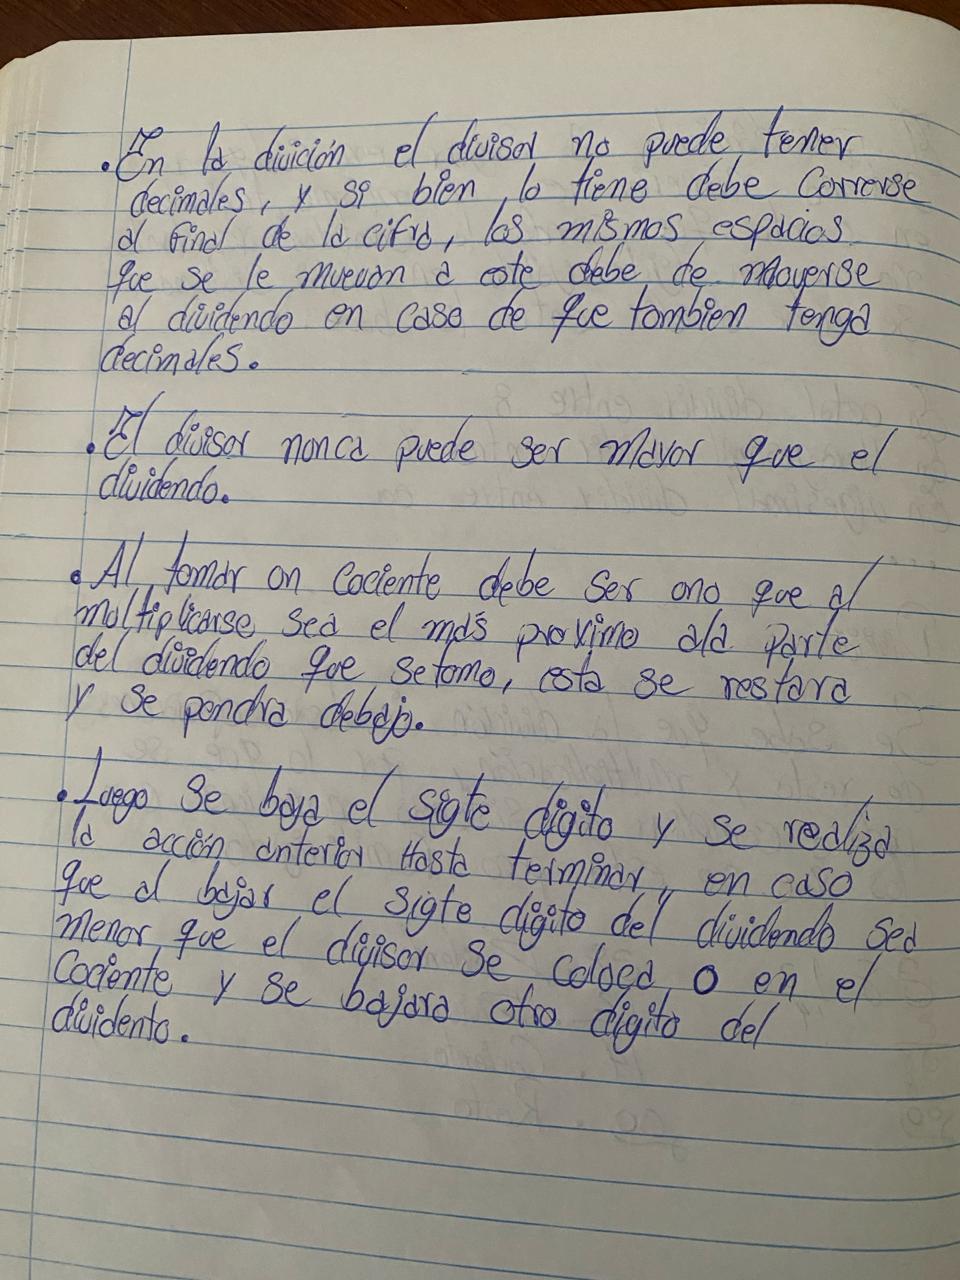 . En la divición el divisor no puede tener
decimales, y si bien lo tiene debe correrse
al final de la cifra, los mismos espacios
que se le muevan a este debe de moverse
al dividendo en caso de que tambien tenga
decimales.
. El divisor nonca puede ser mayor que el
dividendo.
. Al tomar on cociente debe ser ono que al
moltiplicarse sea el más proximo ala parte
del dividendo que se tomo, esta se restara
y se pondra debajo.
. Luego se baja el sigte digito y se realiza
la acción anterior Hasta terminar, en caso
que al bajar el sigte digito del dividendo sea
menor que el divisor se coloca 0 en el
Cociente y se bajara otro digito del
dividento.